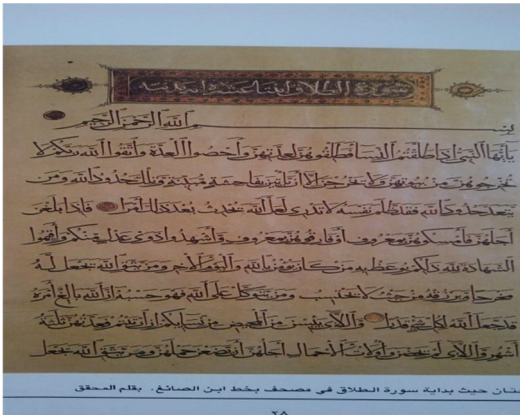 سورة الطلاق اثنتا عشرة اية مدنية
بسم الله الرحمن الرحيم
يا أيها النبي إذا طلقتم النسا فطلقوهن لعدتهن وأحصوا العدة واتقوا الله ربكم لا
تخرجوهن من بيوتهن ولا يخرجن إلا أن يأتين بفاحشة مبينة وتلك حدود الله ومن
يتعد حدود الله فقد ظلم نفسه لا تدري لعل الله يحدث بعد ذلك أمرا فإذا بلغن
أجلهن فأمسكوهن بمعروف أو فارقوهن بمعروف وأشهدوا ذوي عدل منكم وأقيموا
الشهادة لله ذلكم يوعظ به من كان يؤمن بالله واليوم الآخر ومن يتق الله يجعل له
مخرجا ويرزقه من حيث لا يحتسب ومن يتوكل على الله فهو حسبه إن الله بالغ أمره
قد جعل الله لكل شيء قدرا واللاي يئسن من المحيض من نسايكم إن ارتبتم فعدتهن ثلثة
أشهر واللاي لم يحضن وأولات الأحمال أجلهن أن يضعن حملهن ومن يتق الله يجعل
ستان حيث بداية سورة الطلاق في مصحف بخط ابن الصائغ. بقلم المحقق
٢٨